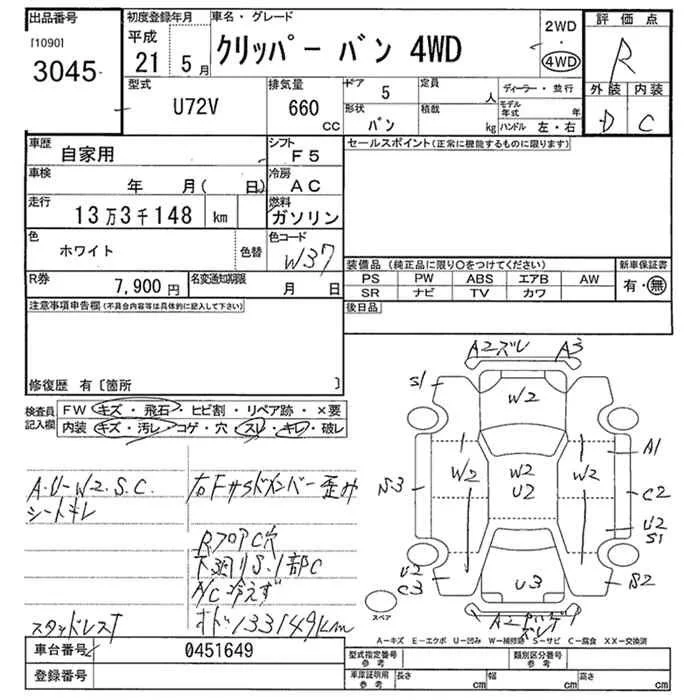 出品番号
[1090]
3045
初度登録年月
平成
21 5月
車名・グレード
クリッパー バン 4WD
2WD
4WD
評価点
R
外装 内装
D C
型式
U72V
排気量
660
CC
ドア 5
形状
バン
定員
人
積載
kg
ディーラー・並行
モデル年式 年
ハンドル 左・右
車歴
自家用
シフト
F5
車検
年 月( 日)
冷房
AC
走行
13万3千148 km
燃料
ガソリン
色
ホワイト
色替
色コード
W37
R券
7,900円
名変通知期限
月 日
セールスポイント(正常に機能するものに限ります)
装備品 (純正品に限り○をつけてください)
新車保証書
PS PW ABS エアB AW
SR ナビ TV カワ
有・無
注意事項申告欄(不具合内容等は具体的に記入して下さい)
後日品
修復歴 有〔箇所 〕
検査員記入欄
FW キズ・飛石・ヒビ割・リペア跡・×要
内装 キズ・汚レ・コゲ・穴・スレ・キレ・破レ
A・U-W2.S.C.
シートキレ
スタッドレス
右Fサイドメンバー歪み
RフロアC穴
下廻りS.1部C
A/C冷えず
オド133149km
A2ズレ A3
S1
W2
A1
W2 W2 W2
U2
S3
C2
U2
S1
U2
C3
U3
S2
スペア
A-キズ E-エクボ U-凹み W-補修跡 S-サビ C-腐食 XX-交換済
車台番号
0451649
登録番号
型式指定番号
参考
類別区分番号
参考
車庫証明用
参考
長さ cm 幅 cm 高さ cm